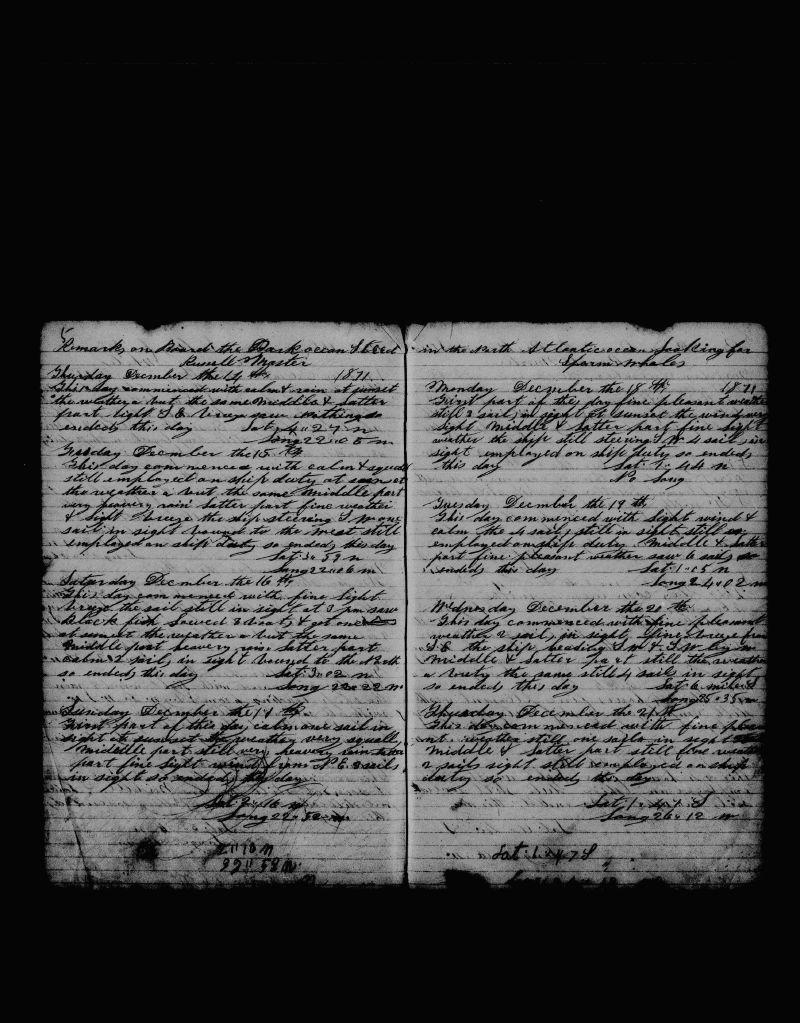 Remarks on Board the Bark ocean Steed
Master
Thursday December the 14 th 1871
This day commenced with calm & rain at sunset
the weather a but the same Middle & latter
part light S.E. breze saw nothing so
endeds this day Lat 4 " 27 N
Long 22 " 05 m
December the 15 th
This day commenced with calm &
still employed on ship duty at
the weather a but the same middle part
very heavery rain latter part fine weather
& light breeze the ship steering S.W one
sail in sight bound to the West still
employed on ship duty so endeds this day
Lat 3 " 59 N
Long 22 " 06 m
Saturday December the 16 th
This day commenced with fine light
breze the sail still in sight at 3 pm saw
black fish lowed 3 boats & got one
at sunset the weather a but the same
middle part heavery rain latter part
calm 2 sail in sight bound to the North
so endeds this day Lat 3 " 02 N
Long 22 " 22 m
Sunday December the 17 th
First part of this day calm one sail in
sight at sunset the weather very squall
middle part still very heavery rain
part fine light wind from N.E. 3 sails
in sight so ended this day
Lat 2 " 16 N
Long 22 " 52 m
2 " 10 N
22 " 58 m
in the North Atlantic ocean looking for
Sperm Whales
Monday December the 18 th 1871
First part of this day fine pleasent weather
still 3 sail in sight at sunset the wind very
light middle & latter part fine light
weather the ship still steering S.W 4 sail in
sight employed on ship duty so endeds
this day Lat 1 " 44 N
No Long
Tuesday December the 19 th
This day commenced with light wind &
calm the 4 sails still in sight still
employed on ship duty Middle & latter
part fine pleasant weather saw 6 sails so
endeds this day Lat 1 " 05 N
Long 24 " 02 m
Wednesday December the 20 th
This day commenced with fine pleasant
weather 2 sail in sight fine breze from
S.E the ship heading S.W & S.W by m
middle & latter part still the weather
a buty the same still 4 sails in sight
so endeds this day Lat 6 miles
Long 25 " 35 m
Thursday December the 21 st
This day commenced with fine pleas
nt weather still one saila in sight
middle & latter part still fine weather
2 sails sight still employed on ship
duty so endeds this day
Lat 1 " 47 S
Long 26 " 12 m
Lat 1 " 47 S